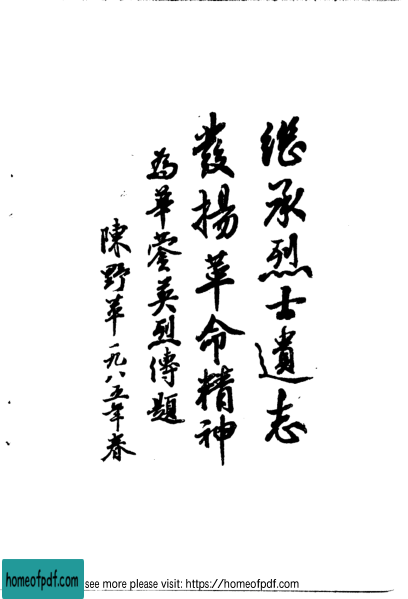 继承烈士遺志
發揚革命精神
為華蓥英烈傳題
陳野苹一九八五年春
homeofpdf.com
see more please visit: https://homeofpdf.com